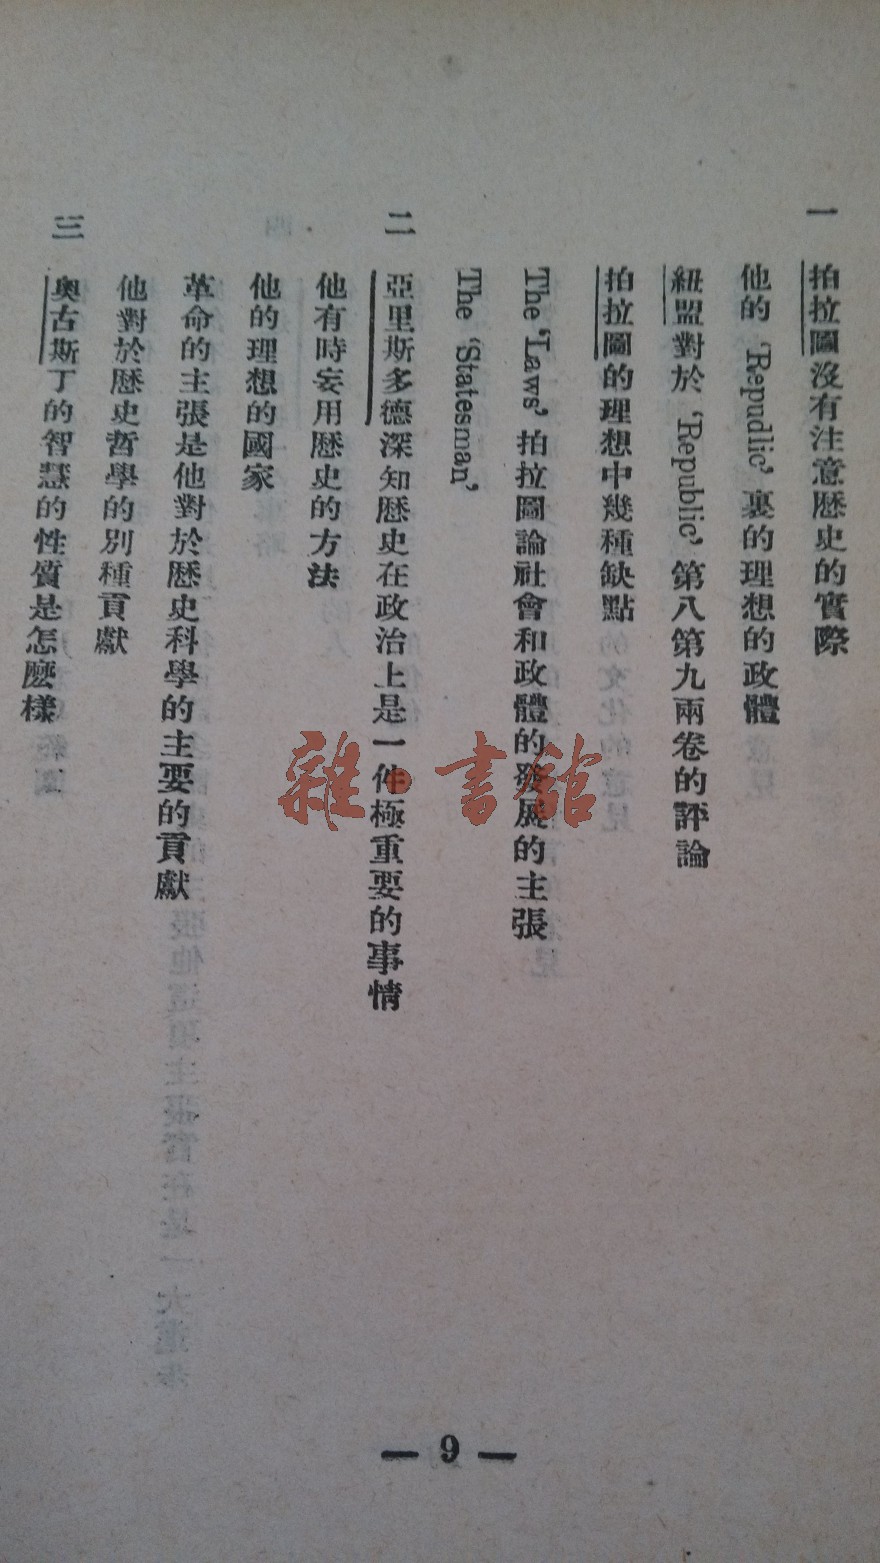 一
拍拉圖沒有注意歷史的實際
他的 'Repudlic' 裏的理想的政體
紐盟對於 'Republic' 第八第九兩卷的評論
拍拉圖的理想中幾種缺點
The 'Laws' 拍拉圖論社會和政體的發展的主張
The 'Statesman'
二
亞里斯多德深知歷史在政治上是一件極重要的事情
他有時妄用歷史的方法
他的理想的國家
革命的主張是他對於歷史科學的主要的貢獻
他對於歷史哲學的別種貢獻
三
奧古斯丁的智慧的性質是怎麼樣
— 9 —
雜·書館